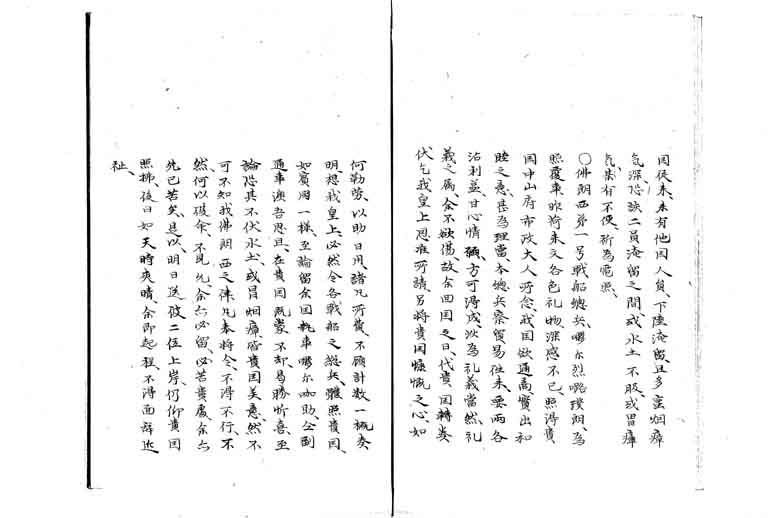 因從来、未有他国人負、下陸淹留、且多重烟瘴
氣、深恐該二員淹留之間、或水土不服、或冒瘴
氣、甚有不便、祈為電照、
〇佛朗西第一号戰船總兵、嘐尔烈嘧璞朗、為
照覆事、昨荷来文各色礼物、深感不已、照得貴
国中山府布政大人所念、我国欲通商、實出和
睦之意、甚為理當、本總兵察貿易往来、要両各
沾利益、甘心情願、方可得成、決為礼義當然、礼
義之為、余不欲傷、故余回国之日、代貴国轉奏
伏乞我皇上恩准所請、另將貴国慷慨之心、如
何勤勞、以助日用、諸凡所費、不願計数、一概奏
明、想我皇上、必然令各戰船之總兵、職照貴国、
如賓同一様、至論留余国執事嘐尔咖助、仝副
通事澳吾思旦、在貴国、既蒙不却、曷勝忻喜、至
論恐其不伏水土、或冒烟瘴、皆貴国美意、然不
可不知、我佛朗西之保、凡奉將令、不得不行、不
然、何以破余、不見允、余亦必留、必苦貴處、余亦
先已苦矣、是以明日送彼二位上岸、仍仰貴国
照拂、後日如天時爽晴、余即起程、不得面辞、近
祉、